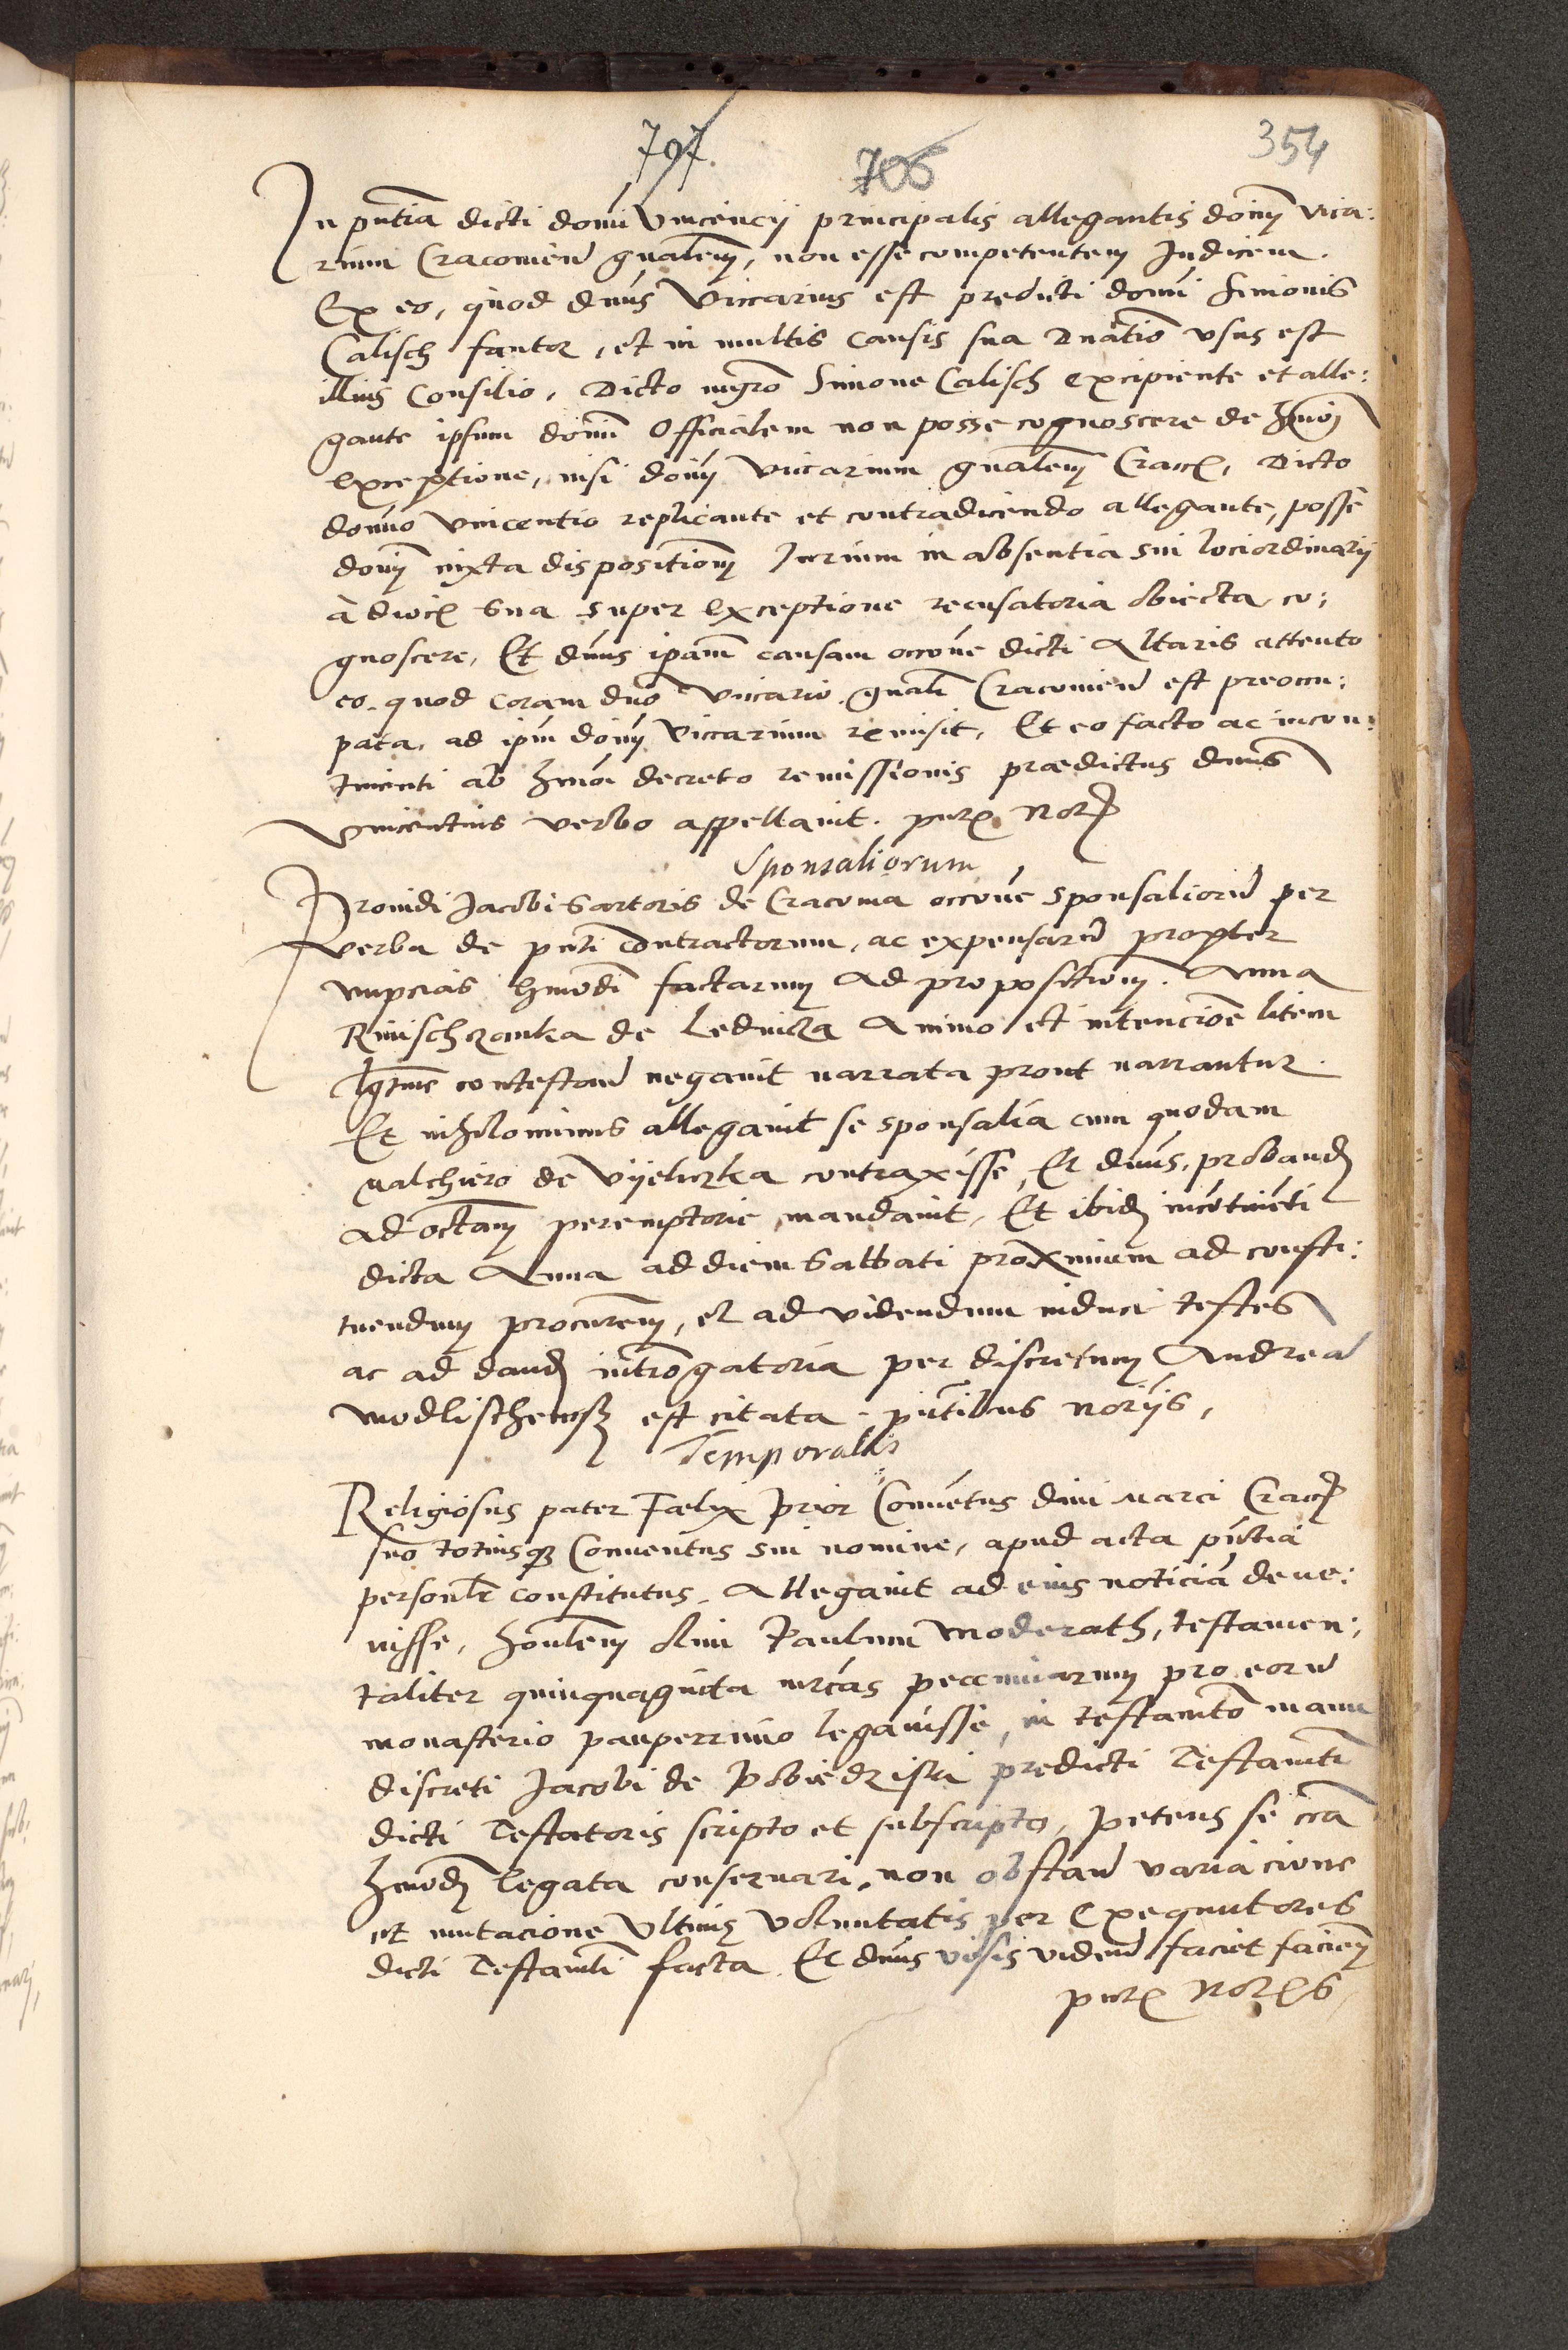 797.
706
354
In pntia dicti domi Vincencij principalis allegantis donm vica:
rium Cracovien gnalem, non esse competentem Judicem.
Ex eo, quod dnus Viccarius est predicti domi Simonis
Calisch fautor, et in multis causis sua Dnatio usus est
illius Consilio, Dicto mgro Simone Calisch excipiente et alle:
gante ipsum donm Officialem non posse cognoscere de hmoi
exceptione, nisi donm Viccarium gnalem Cracc, Dicto
domno Vincentio replicante et contradicendo allegante, posse
donm iuxta dispositionm Jurium in absentia sui loci ordinarij
à dioc sua super exceptione recusatoria obiecta co:
gnoscere, Et dnus ipam causam occone dicti Altaris attento
eo quod coram dno Viccario gnali Cracovien est preoccu:
pata, ad ipm donm Viccarium remisit, Et eo facto ac incon:
tinenti ab hmoi decreto remissionis praedictus dnus
Vincentius verbo appellavit. pntx Nory
Sponsaliorum
Providi Jacobi Sartoris de Cracovia occone sponsalioru per
verba de pnti contractorum, ac expensaru propter
nupcias hmodi factarum Ad propositionm. Anna
Rinischzanka de Lednicza Animo et intencione litem
lgtime contestan negavit narrata prout narrantur.
Et nihilominus allegavit se sponsalia cum quodam
Malchiero de Vyeliczka contraxisse, Et dnus, proband
ad octavam peremptorie mandavit, Et ibidem incontinenti
dicta Anna ad diem Sabbati proximum ad consti:
tuendum procurem, et ad videndum induci testes
ac ad dand introgatoria per discretum Andrea
Modlischewsky est citata. pntibus noriis,
Temporalis
Religiosus pater Faelix Prior Conventus divi Marci Cracc
suo totiusq Conventus sui nomine, apud acta pntia
personlr constitutus, Allegavit ad eius noticia deve:
nisse, honlem olim Paulum Moderath, testamen:
taliter quinquaginta mrcas peccuniarum pro eoru
monasterio pauperrimo legavisse, in testamto manu
discreti Jacobi de Pobiedziska predicti Testamti
dicti Testatoris scripto et subscripto, petens se cra
hmodi legata conservari, non obstan variacione
et mutacione Ultime voluntatis per Exequutores
dicti Testamti facta. Et dnus visis viden faciet faciem
pntx Norys